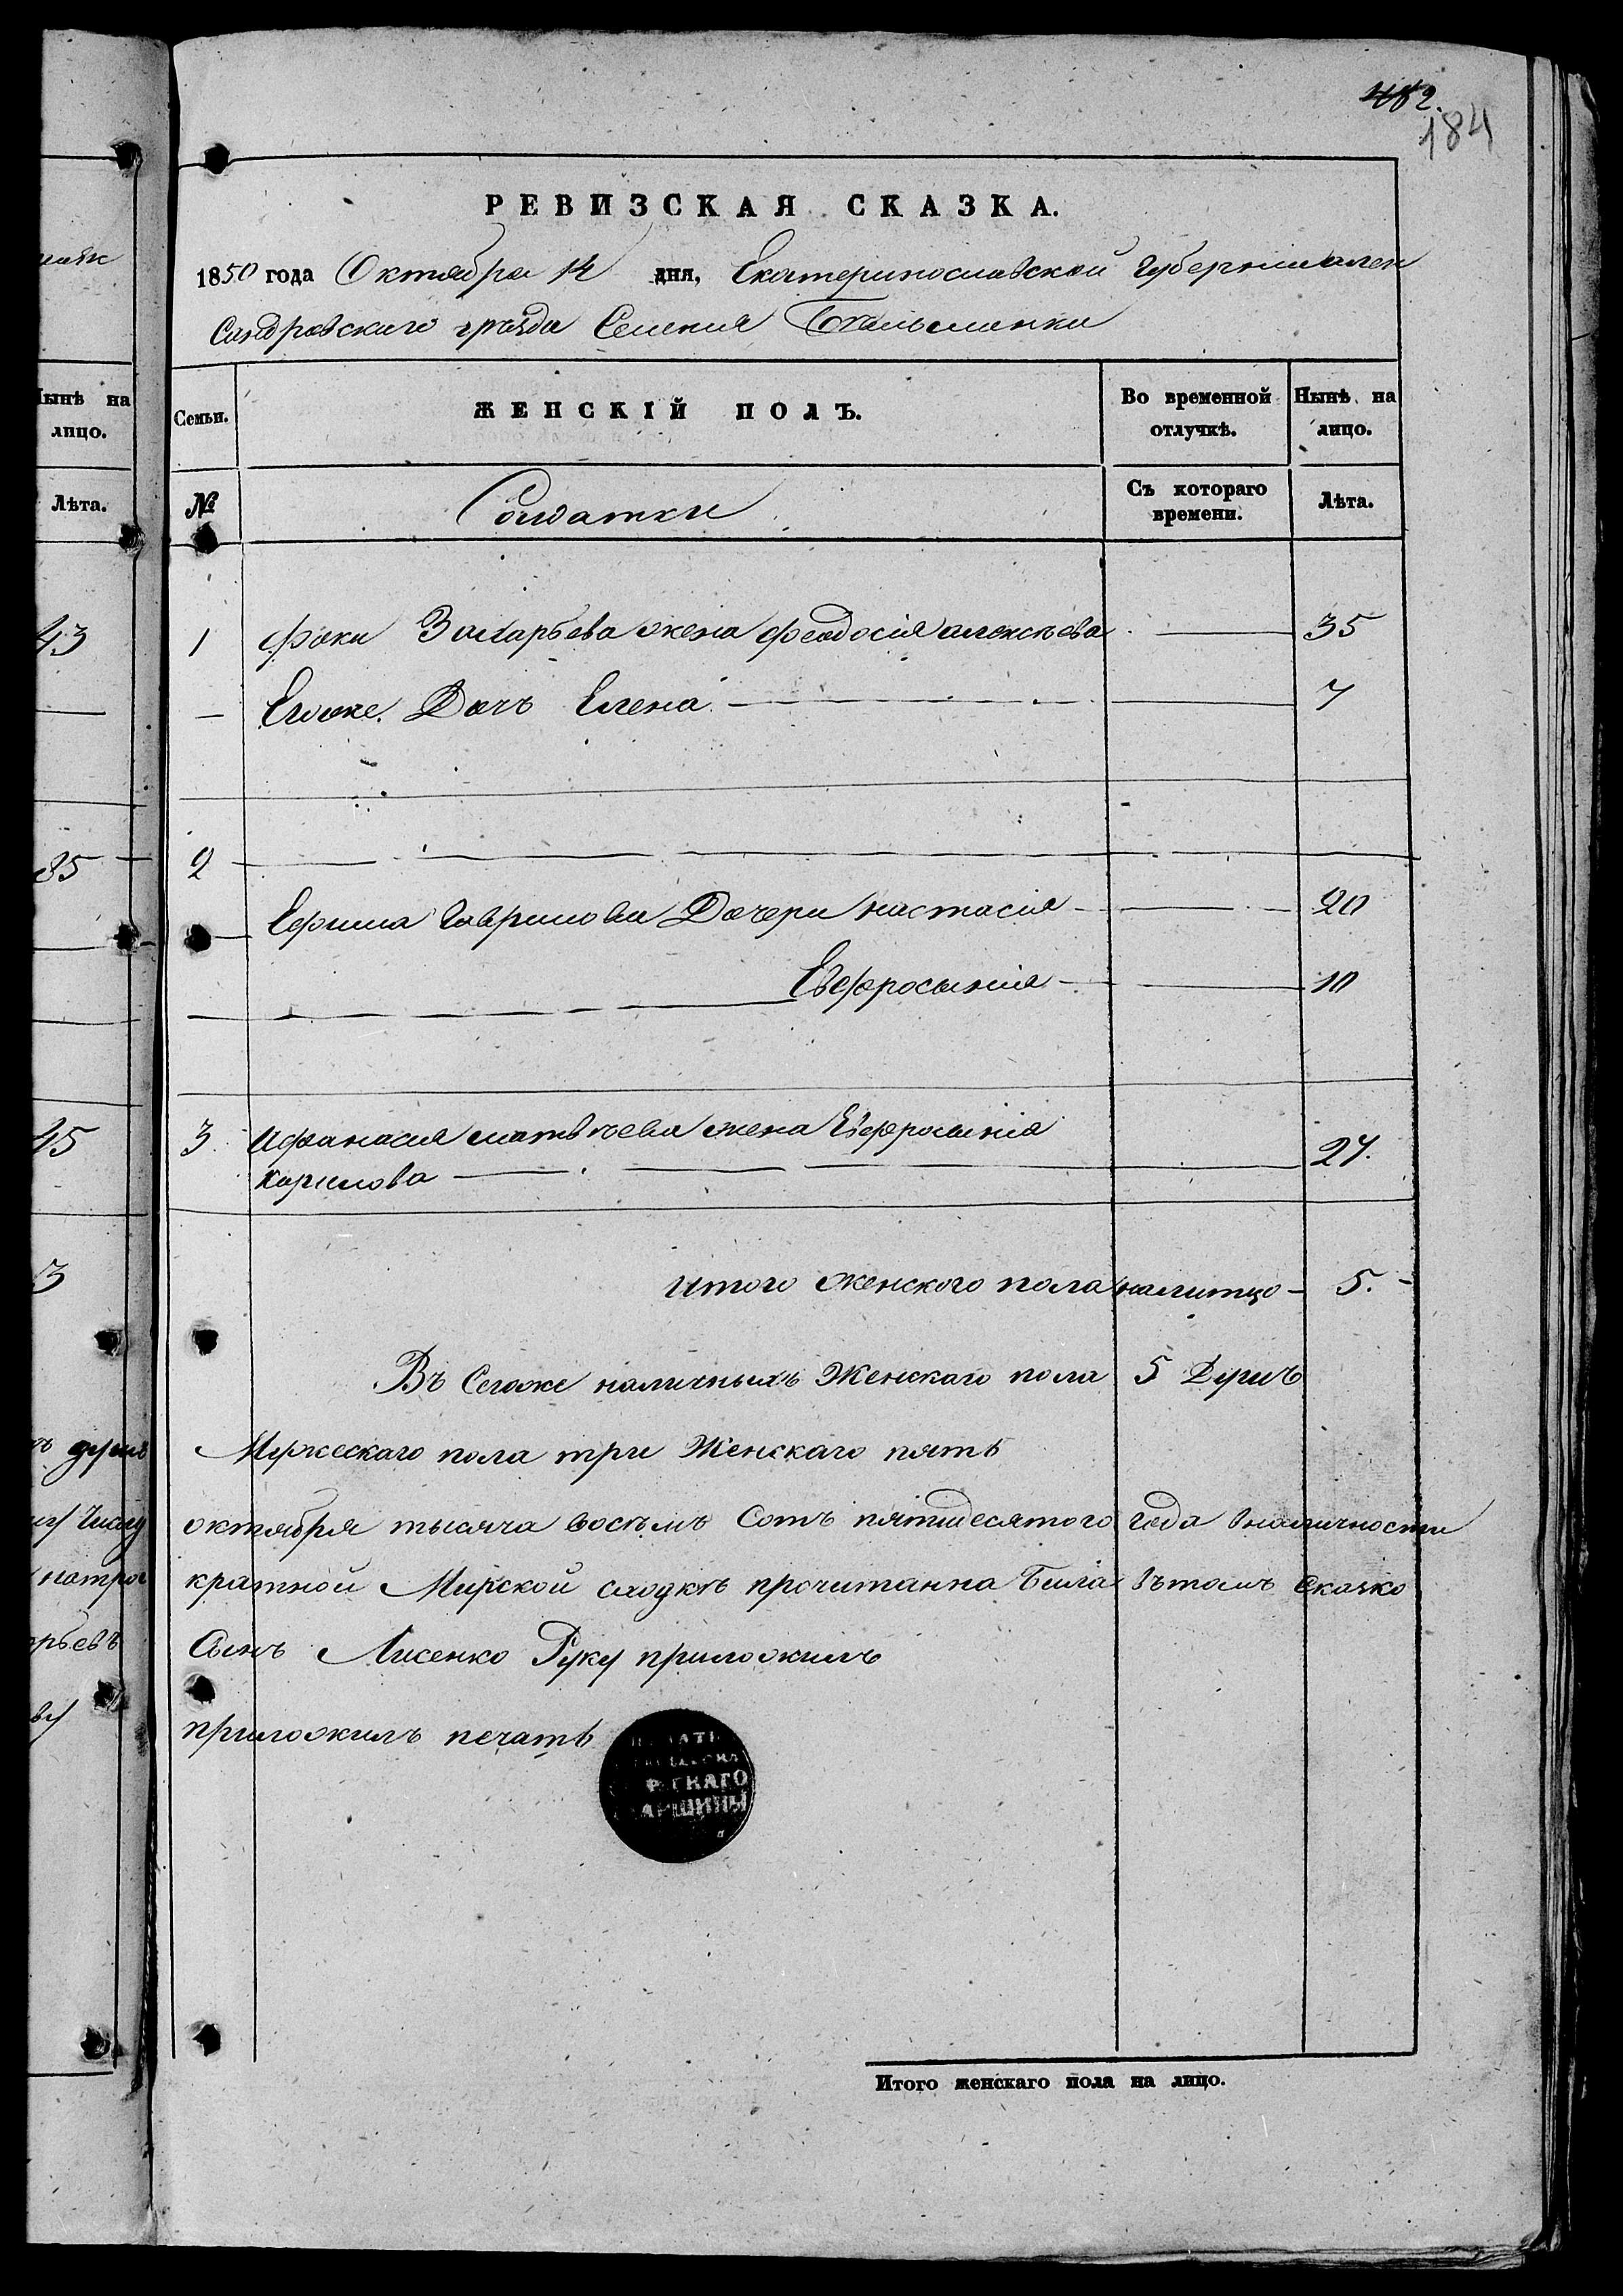 482.
184
РЕВИЗСКАЯ СКАЗКА.
1850 года Октября 12 дня, Екатеринославской Губерніи Алек
Сандровскаго уѣзда Селенія
Нынѣ на
лицо.
Лѣта.
Семьи.
ЖЕНСКІЙ ПОЛЪ.
Во временной
отлучкѣ.
Нынѣ на
лицо.
№
Солдатки
Съ котораго
времени.
Лѣта.
43
1 Фоки Захарьева жена Феодосія алексѣева 35
— Егоже Дочъ Елена 7
35
2
Ефима Гаврилова Дочери Настасія 20
Евфросинія 10
45
3 Афанасия матвѣева жена Евфросинія
Карилова 27.
3
Итого женского пола налитцо 5.
Въ Сегоже наличныхъ Женскаго пола 5 Душъ
душъ
Мужескаго пола три Женскаго пять
Числу
октября тысяча восѣмъ Сотъ пятидесятого года вналичности
кратной Мирской сходкѣ прочитанна Била вътомъ
Сынъ Лисенко Руку приложилъ
приложилъ печать
Итого женскаго пола на лицо.